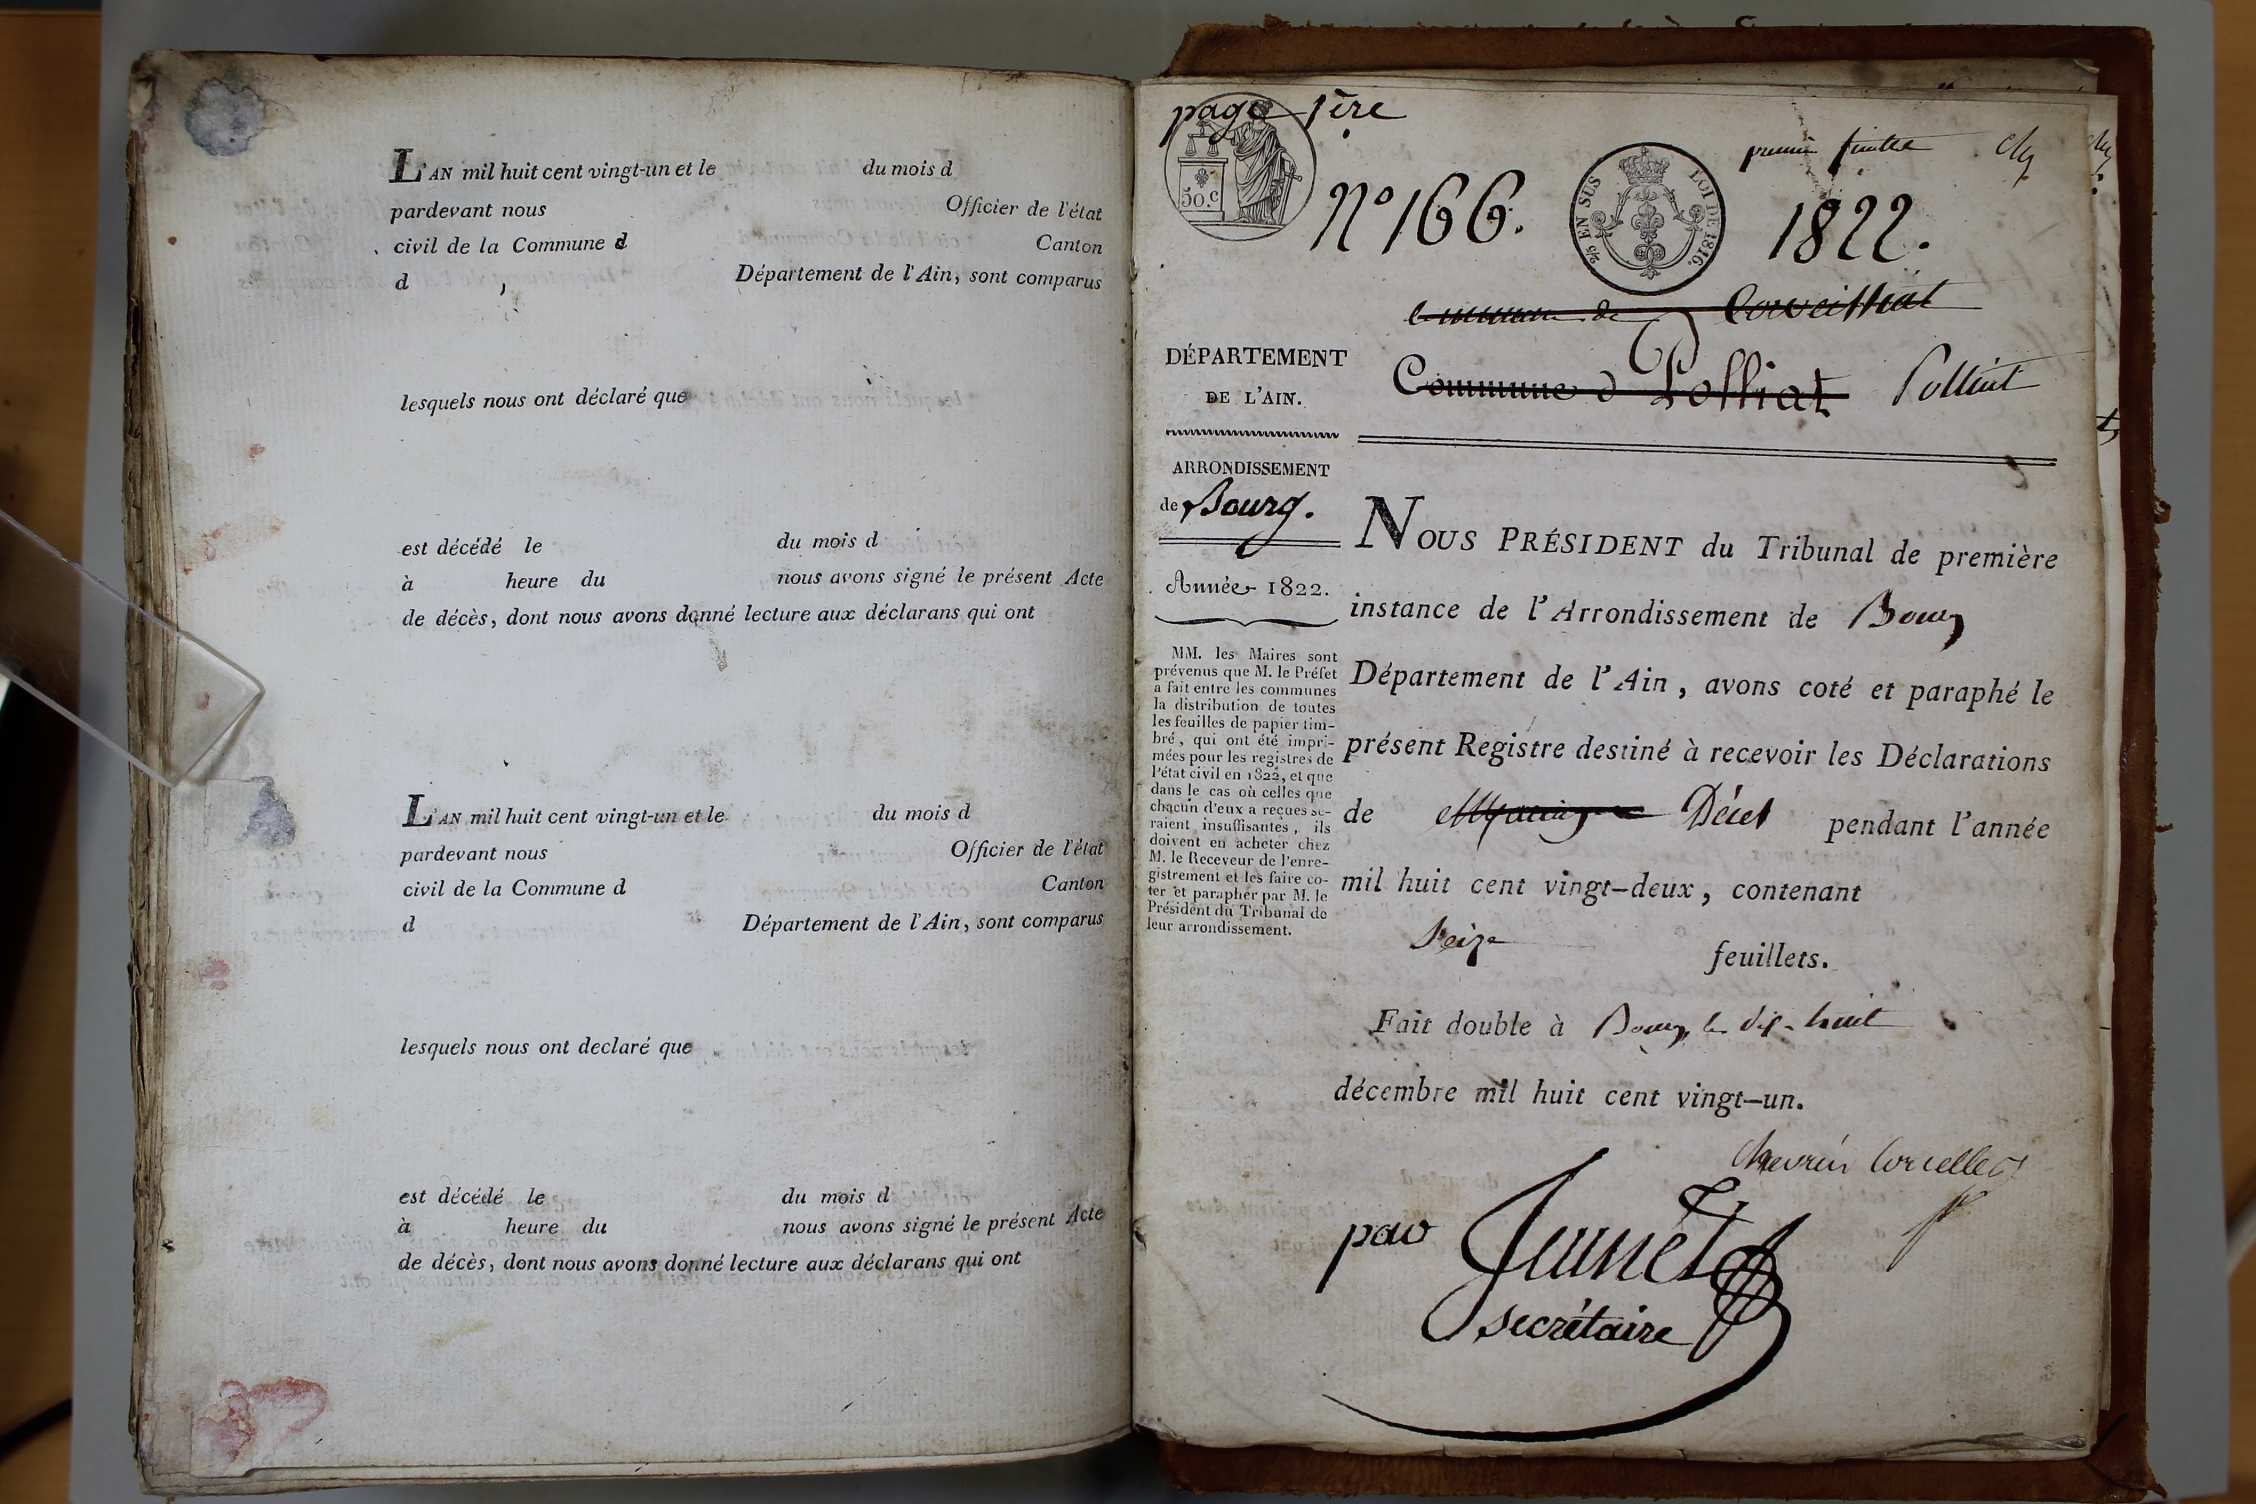 L'AN mil huit cent vingt-un et le du mois d
pardevant nous Officier de l'état
civil de la Commune d Canton
d , Département de l'Ain, sont comparus
lesquels nous ont déclaré que
est décédé le du mois d
à heure du nous avons signé le présent Acte
de décès, dont nous avons donné lecture aux déclarans qui ont
L'AN mil huit cent vingt-un et le du mois d
pardevant nous Officier de l'état
civil de la Commune d Canton
d Département de l'Ain, sont comparus
lesquels nous ont declaré que
est décédé le du mois d
à heure du nous avons signé le présent Acte
de décès, dont nous avons donné lecture aux déclarans qui ont
page 1ère
50.c
N° 166.
2/5 EN SUS LOI DE 1816.
1822.
commune de
Commune d Polliat Polliat
DÉPARTEMENT
DE L'AIN.
ARRONDISSEMENT
de Bourg.
Année 1822.
MM. les Maires sont
prévenus que M. le Préfet
a fait entre les communes
la distribution de toutes
les feuilles de papier tim-
bré, qui ont été impri-
mées pour les registres de
l'état civil en 1822, et que
dans le cas où celles que
chacun d'eux a reçues se-
raient insuffisantes, ils
doivent en acheter chez
M. le Receveur de l'enre-
gistrement et les faire co-
ter et parapher par M. le
Président du Tribunal de
leur arrondissement.
NOUS PRÉSIDENT du Tribunal de première
instance de l'Arrondissement de Bourg
Département de l'Ain, avons coté et paraphé le
présent Registre destiné à recevoir les Déclarations
de Décès pendant l'année
mil huit cent vingt-deux, contenant
Seize feuillets.
Fait double à Bourg, le dix-huit
décembre mil huit cent vingt-un.
Chevrier Corcelles
par Junet
secrétaire